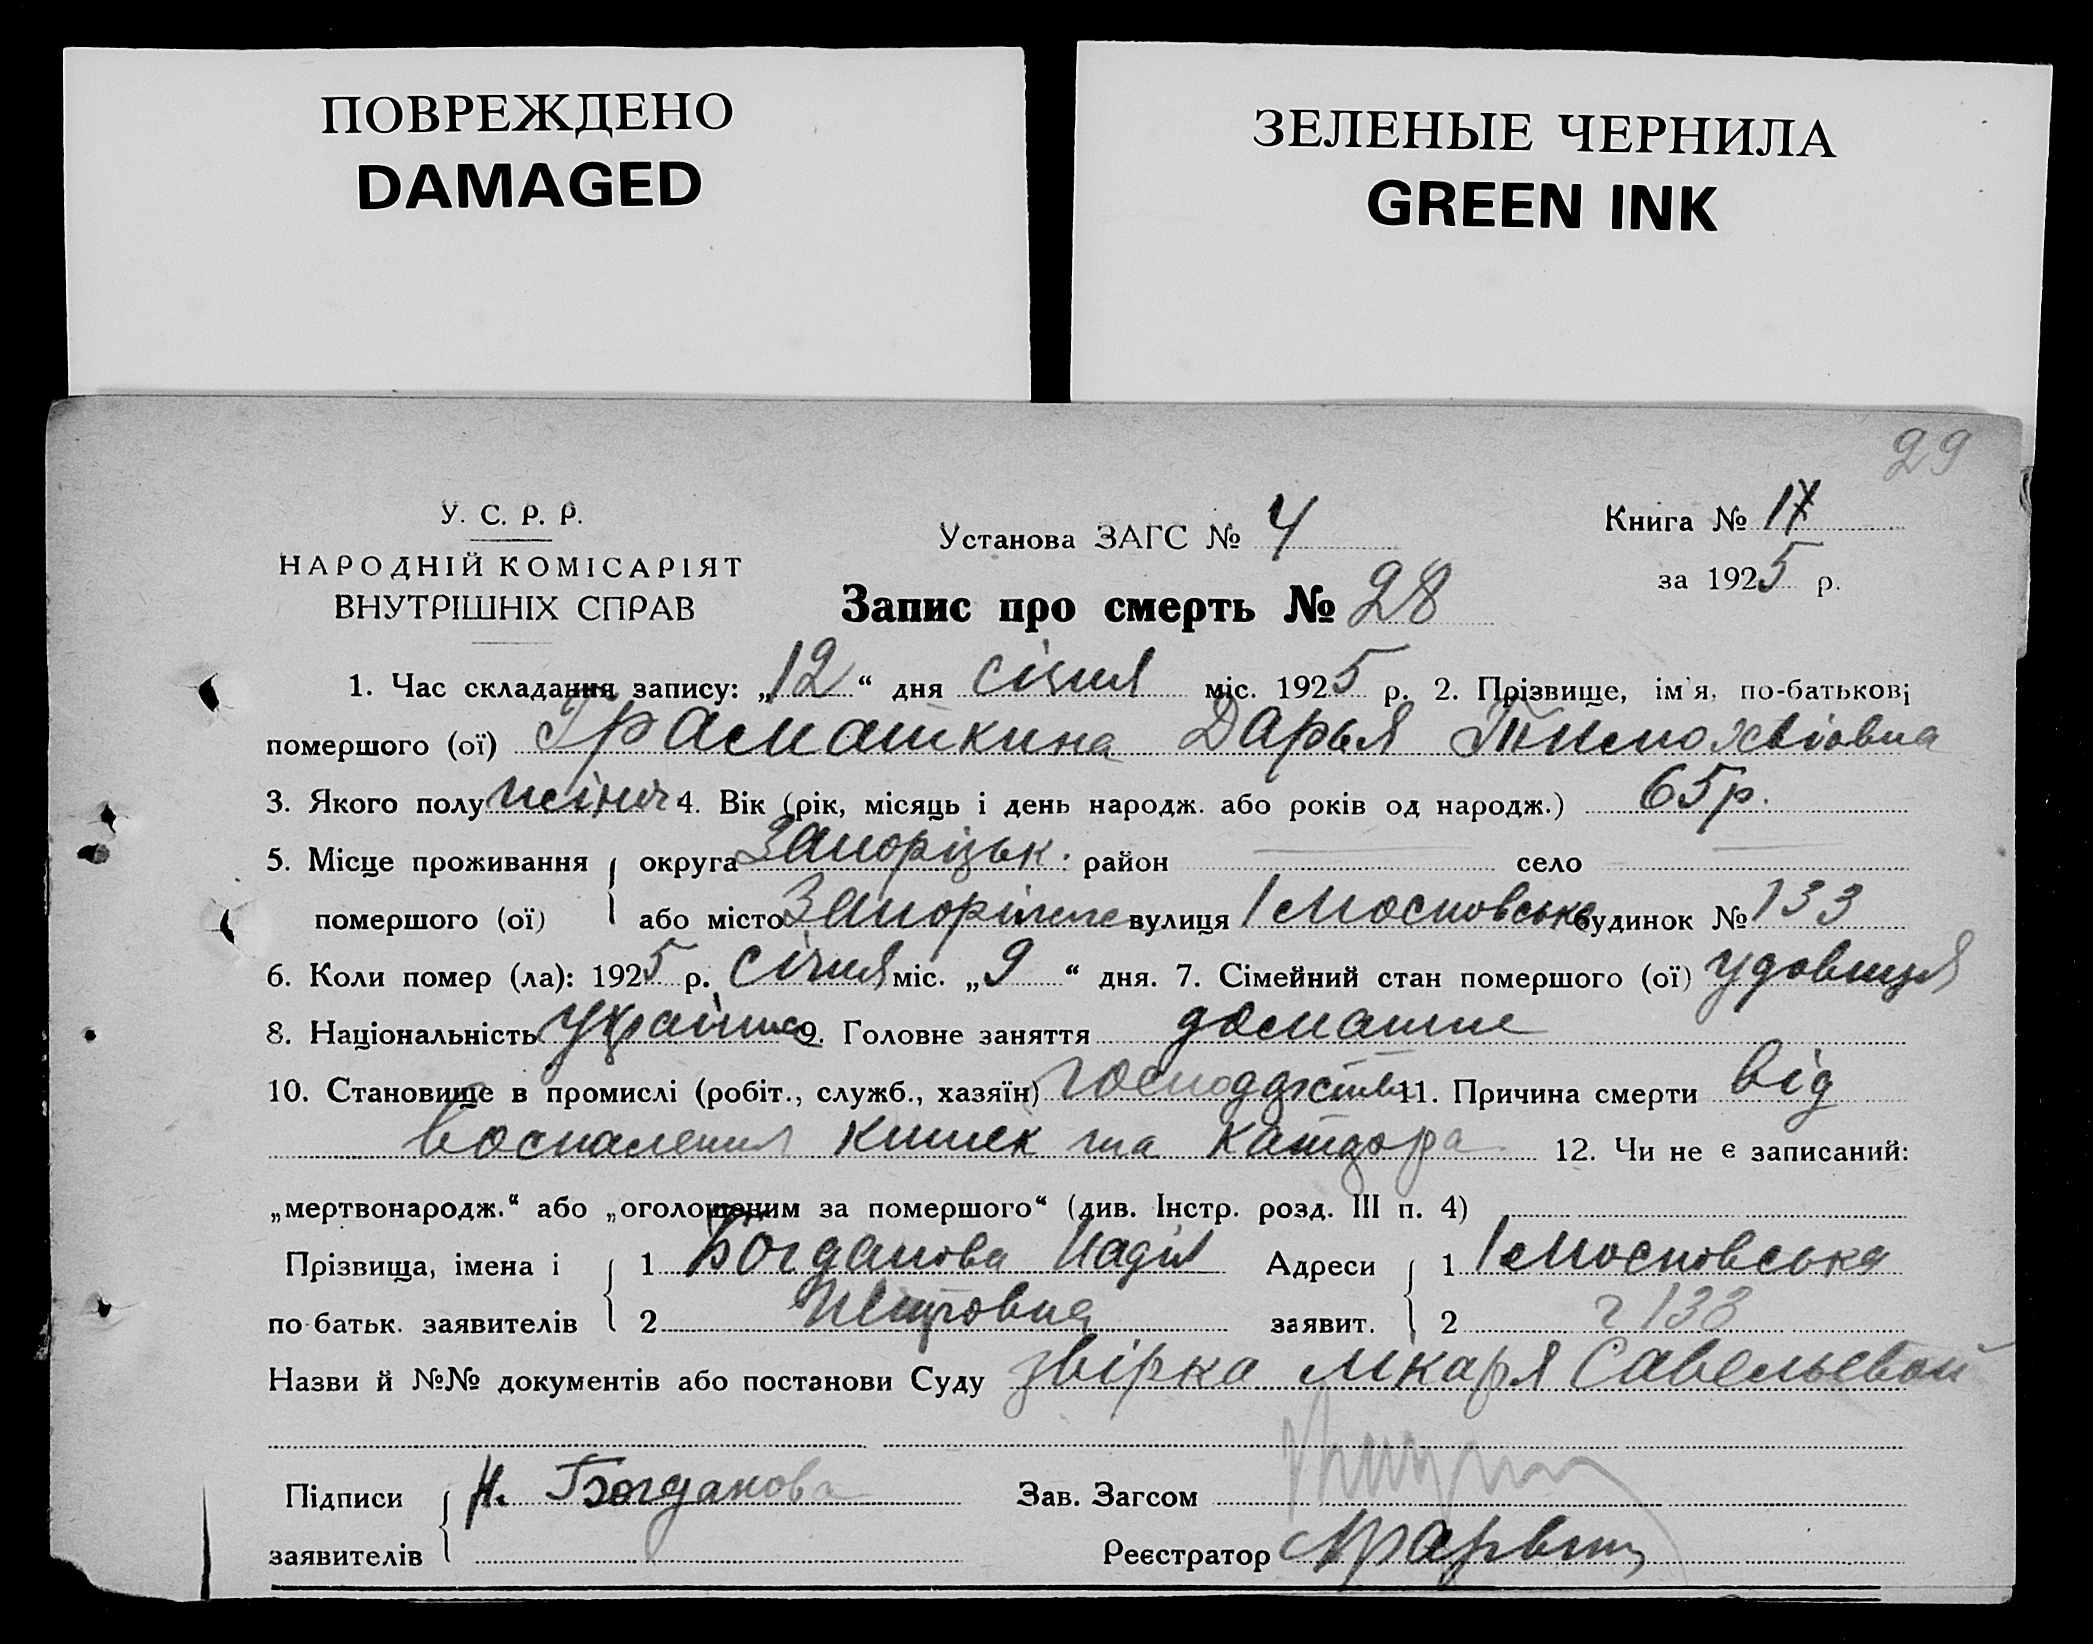 ПОВРЕЖДЕНО
DAMAGED
ЗЕЛЕНЫЕ ЧЕРНИЛА
GREEN INK
29
У. С. Р. Р.
НАРОДНІЙ КОМІСАРІЯТ
ВНУТРІШНІХ СПРАВ
Установа ЗАГС № 4
Книга №
за 1925 р.
Запис про смерть № 28
1. Час складання запису: „12“ дня січня міс. 1925 р. 2. Прізвище, ім'я, по-батькові
помершого (ої) Граматкина Дарья Тимохвіовна
3. Якого полу жіноч 4. Вік (рік, місяць і день народж. або років од народж.) 65 р.
5. Місце проживання округа Запоріцьк. район — село —
помершого (ої) або місто Запоріжже вулиця I Московська будинок № 133
6. Коли помер (ла): 1925 р. Січня міс. „9“ дня. 7. Сімейний стан помершого (ої) удовиця
8. Національність 9. Головне заняття домашне
10. Становище в промислі (робіт., служб., хазяїн) 11. Причина смерти від
воспаления кишек та 12. Чи не є записаний:
„мертвонародж.“ або „оголошеним за помершого“ (див. Інстр. розд. III п. 4)
Прізвища, імена і 1 Богданова Надія Адреси 1 I Московська
по батьк. заявителів 2 заявит. 2 ч 133
Назви й №№ документів або постанови Суду звірка лікаря Савельевой
Підписи Н. Богданова Зав. Загсом
заявителів Реєстратор